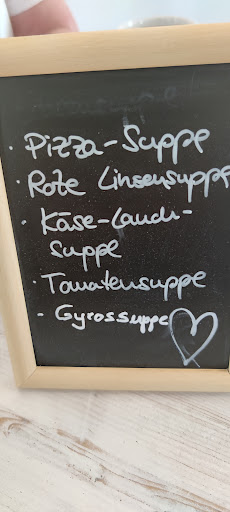 · Pizza-Suppe
· Rote Linsensuppe
· Käse-Lauch-
Suppe
· Tomatensuppe
· Gyrossuppe